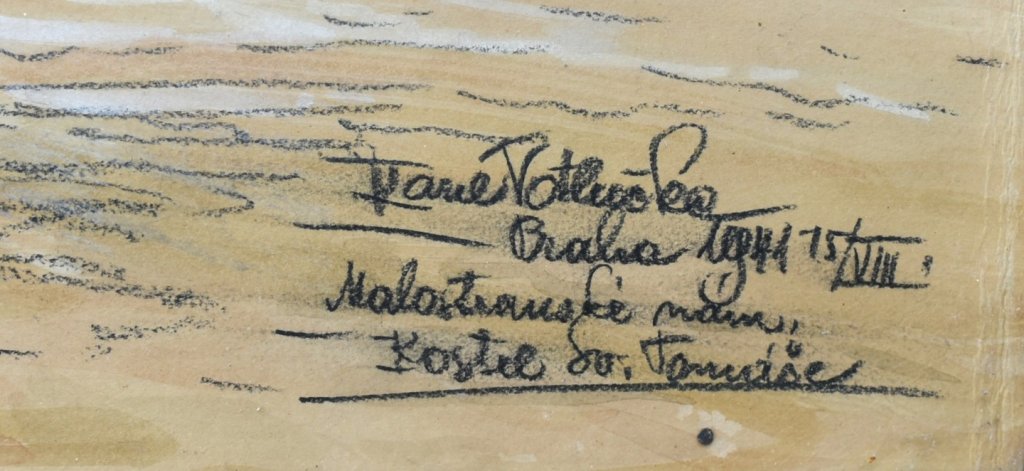 Karel Votlučka
Praha 1941 15/VIII.
Malostranské nám.
Kostel Sv. Tomáše